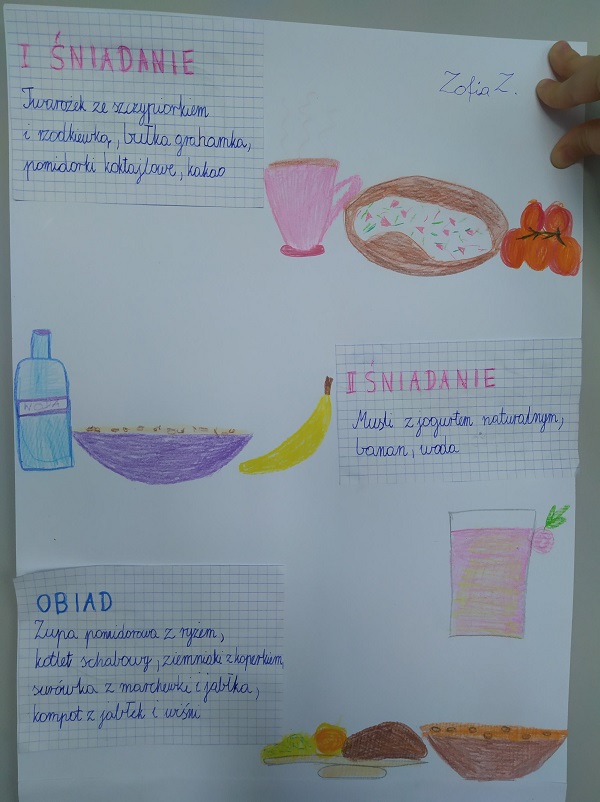 I ŚNIADANIE
Twarożek ze szczypiorkiem
i rzodkiewką, bułka grahamka,
pomidorki koktajlowe, kakao
Zofia Z.
WODA
II ŚNIADANIE
Musli z jogurtem naturalnym,
banan, woda
OBIAD
Zupa pomidorowa z ryżem,
kotlet schabowy, ziemniaki z koperkiem,
surówka z marchewki i jabłka,
kompot z jabłek i wiśni